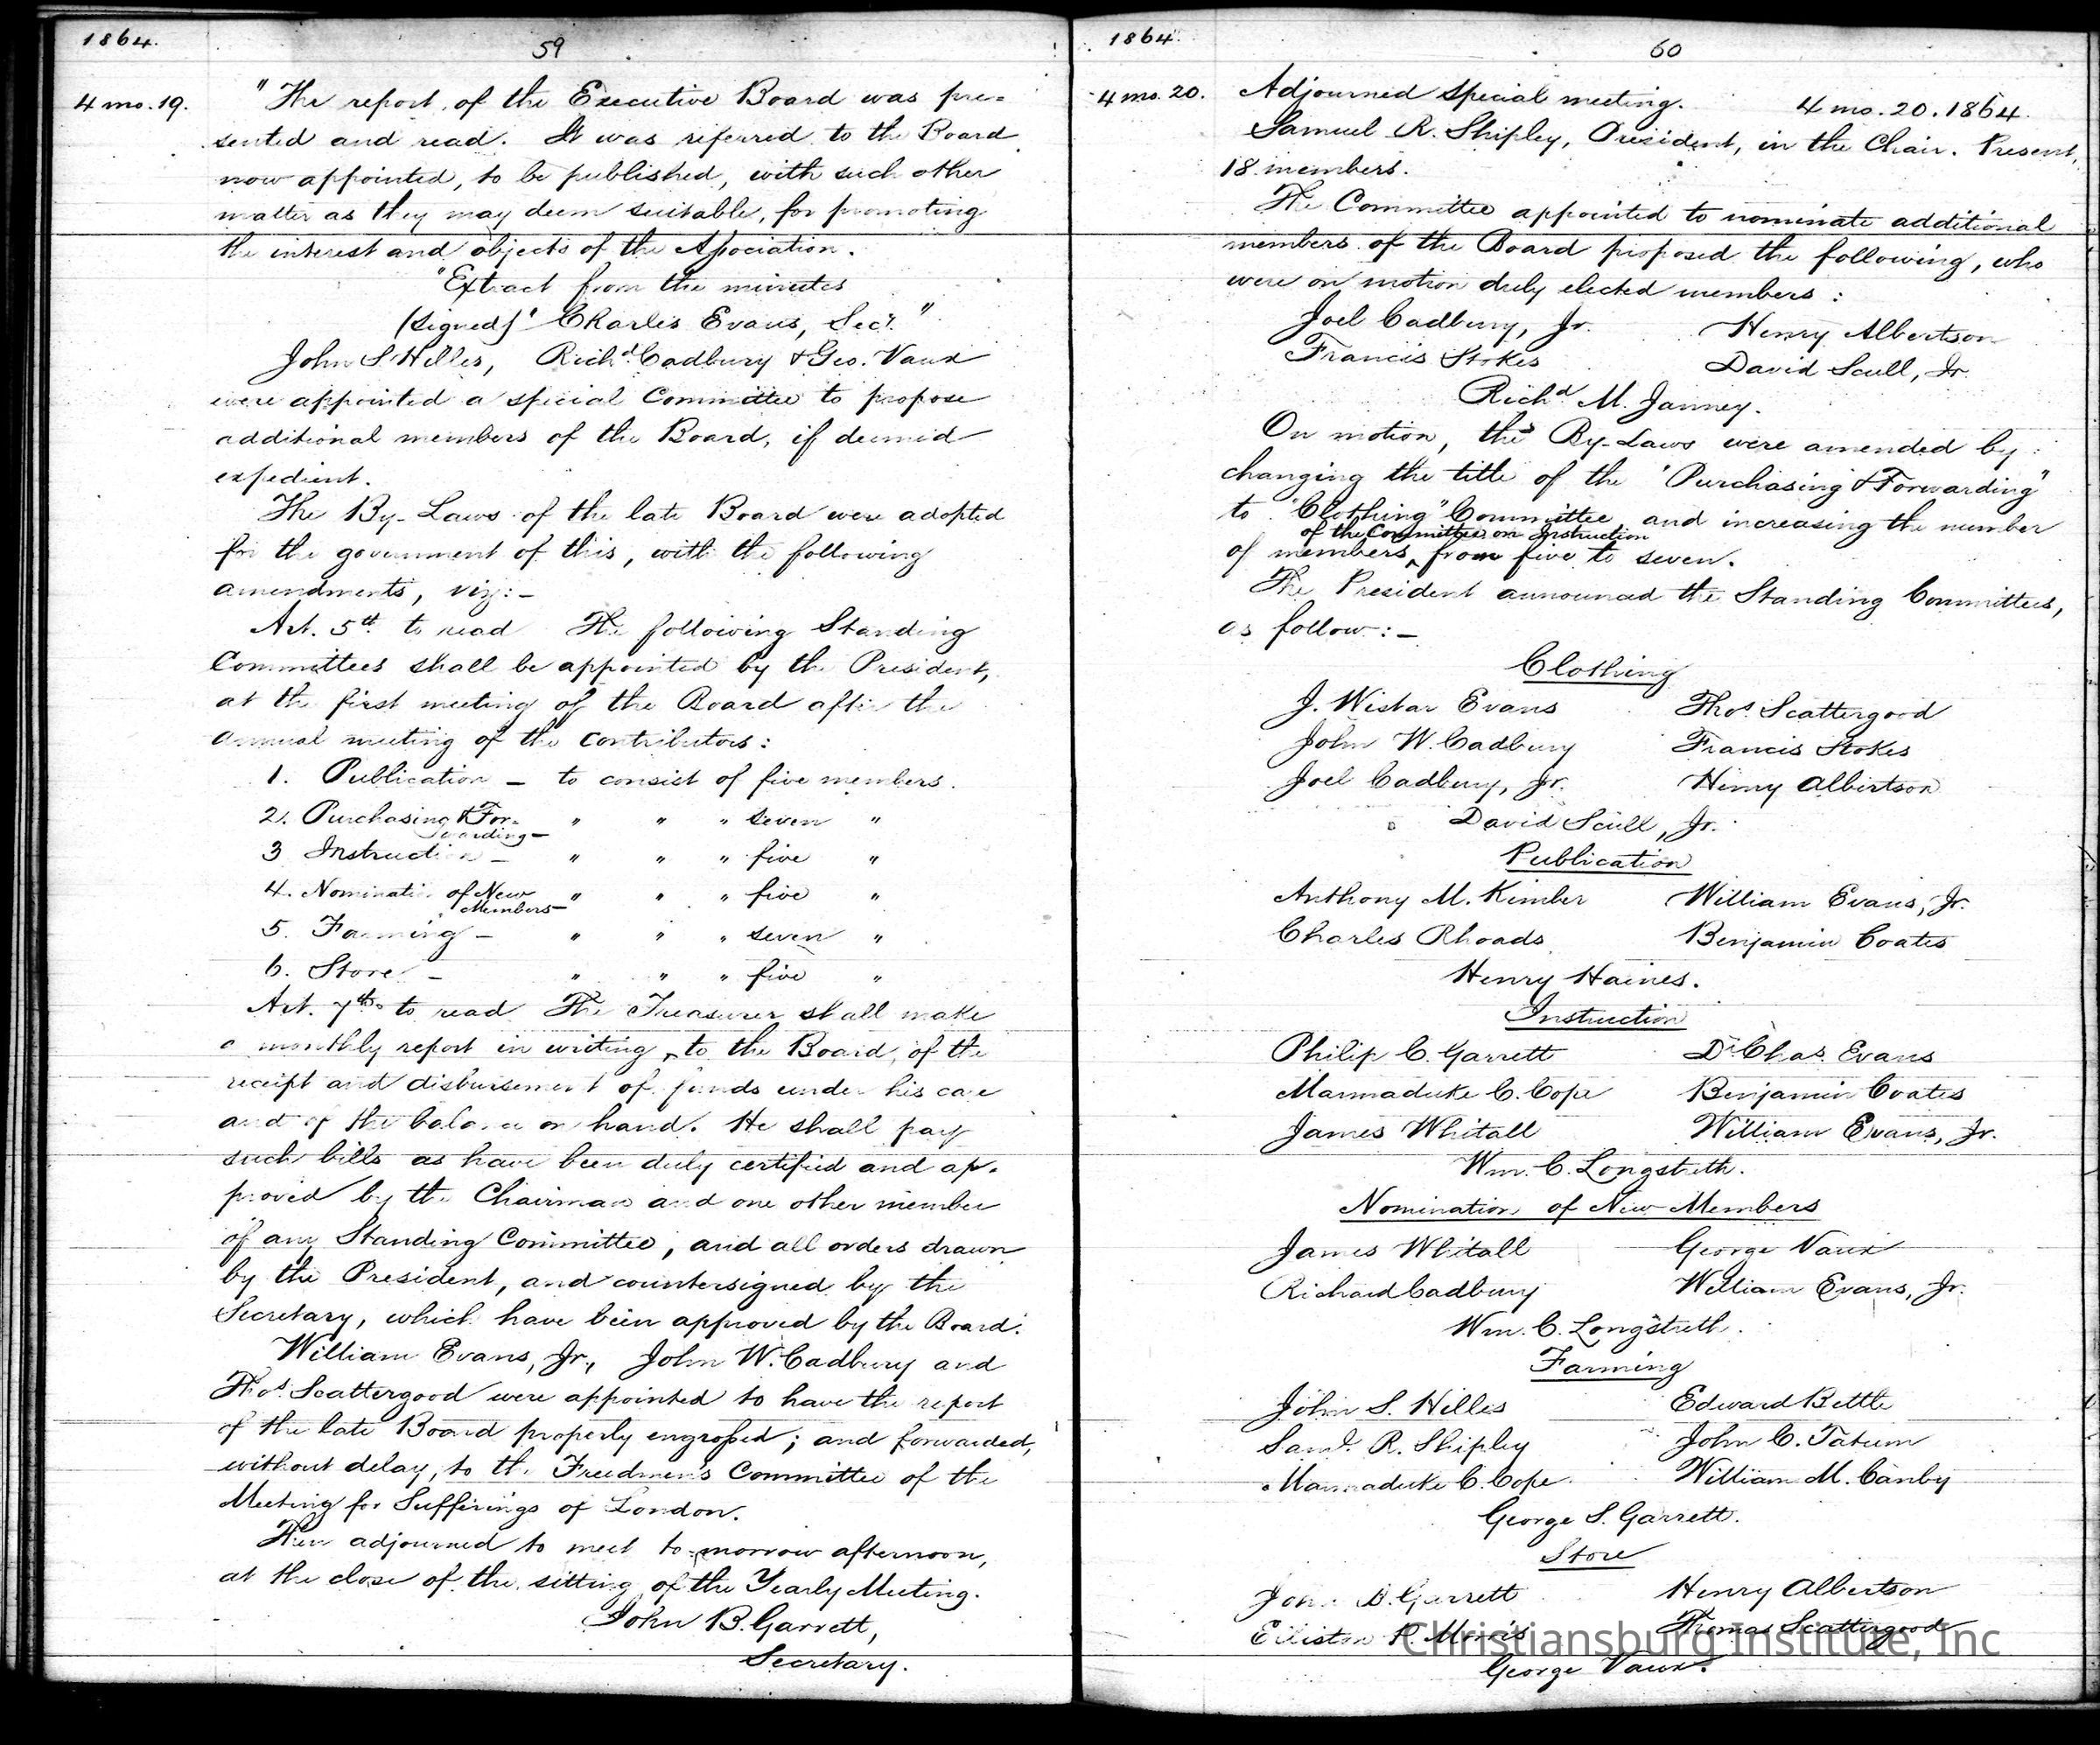 1864.
59
4 mo. 19.
"The report of the Executive Board was pre=
sented and read. It was referred to the Board
now appointed, to be published, with such other
matter as they may deem suitable, for promoting
the interest and objects of the Association.
"Extract from the minutes
(signed) "Charles Evans, Secy."
John S. Hilles, Richd. Cadbury & Geo. Vaux
were appointed a special Committee to propose
additional members of the Board, if deemed
expedient.
The By-Laws of the late Board were adopted
for the government of this, with the following
amendments, viz:-
Art. 5th to read The following Standing
Committees shall be appointed by the President,
at the first meeting of the Board after the
annual meeting of the contributors:
1. Publication - to consist of five members.
2. Purchasing & For- " " " seven "
warding-
3 Instruction - " " " five "
4. Nomination of New " " " five "
Members-
5. Farming - " " " seven "
6. Store - " " " five "
Art. 7th to read The Treasurer shall make
a monthly report in writing, to the Board, of the
receipt and disbursement of funds under his care
and of the balance on hand. He shall pay
such bills as have been duly certified and ap-
proved by the Chairman and one other member
of any Standing Committee, and all orders drawn
by the President, and countersigned by the
Secretary, which have been approved by the Board.
William Evans, Jr., John W. Cadbury and
Thos. Scattergood were appointed to have the report
of the late Board properly engrossed; and forwarded,
without delay, to the Freedmen's Committee of the
Meeting for Sufferings of London.
Then adjourned to meet to-morrow afternoon,
at the close of the sitting of the Yearly Meeting.
John B. Garrett,
Secretary.
1864.
60
4 mo. 20.
Adjourned special meeting. 4 mo. 20. 1864.
Samuel R. Shipley, President, in the Chair. Present,
18 members.
The Committee appointed to nominate additional
members of the Board proposed the following, who
were on motion duly elected members:
Joel Cadbury, Jr. Henry Albertson
Francis Stokes David Scull, Jr.
Richd. M. Janney.
On motion, the By-Laws were amended by
changing the title of the "Purchasing & Forwarding"
to "Clothing" Committee and increasing the number
of the Committee on Instruction
of members ^ from five to seven.
The President announced the Standing Committees,
as follow:-
Clothing
J. Wistar Evans Thos. Scattergood
John W. Cadbury Francis Stokes
Joel Cadbury, Jr. Henry Albertson
David Scull, Jr.
Publication
Anthony M. Kimber William Evans, Jr.
Charles Rhoads Benjamin Coates
Henry Haines.
Instruction
Philip C. Garrett Dr. Chas. Evans
Marmaduke C. Cope Benjamin Coates
James Whitall William Evans, Jr.
Wm. C. Longstreth.
Nomination of New Members
James Whitall George Vaux
Richard Cadbury William Evans, Jr.
Wm. C. Longstreth.
Farming
John S. Hilles Edward Bettle
Saml. R. Shipley John C. Tatum
Marmaduke C. Cope William M. Canby
George S. Garrett.
Store
John B. Garrett Henry Albertson
Elliston P. Morris Thomas Scattergood
George Vaux.
Christiansburg Institute, Inc